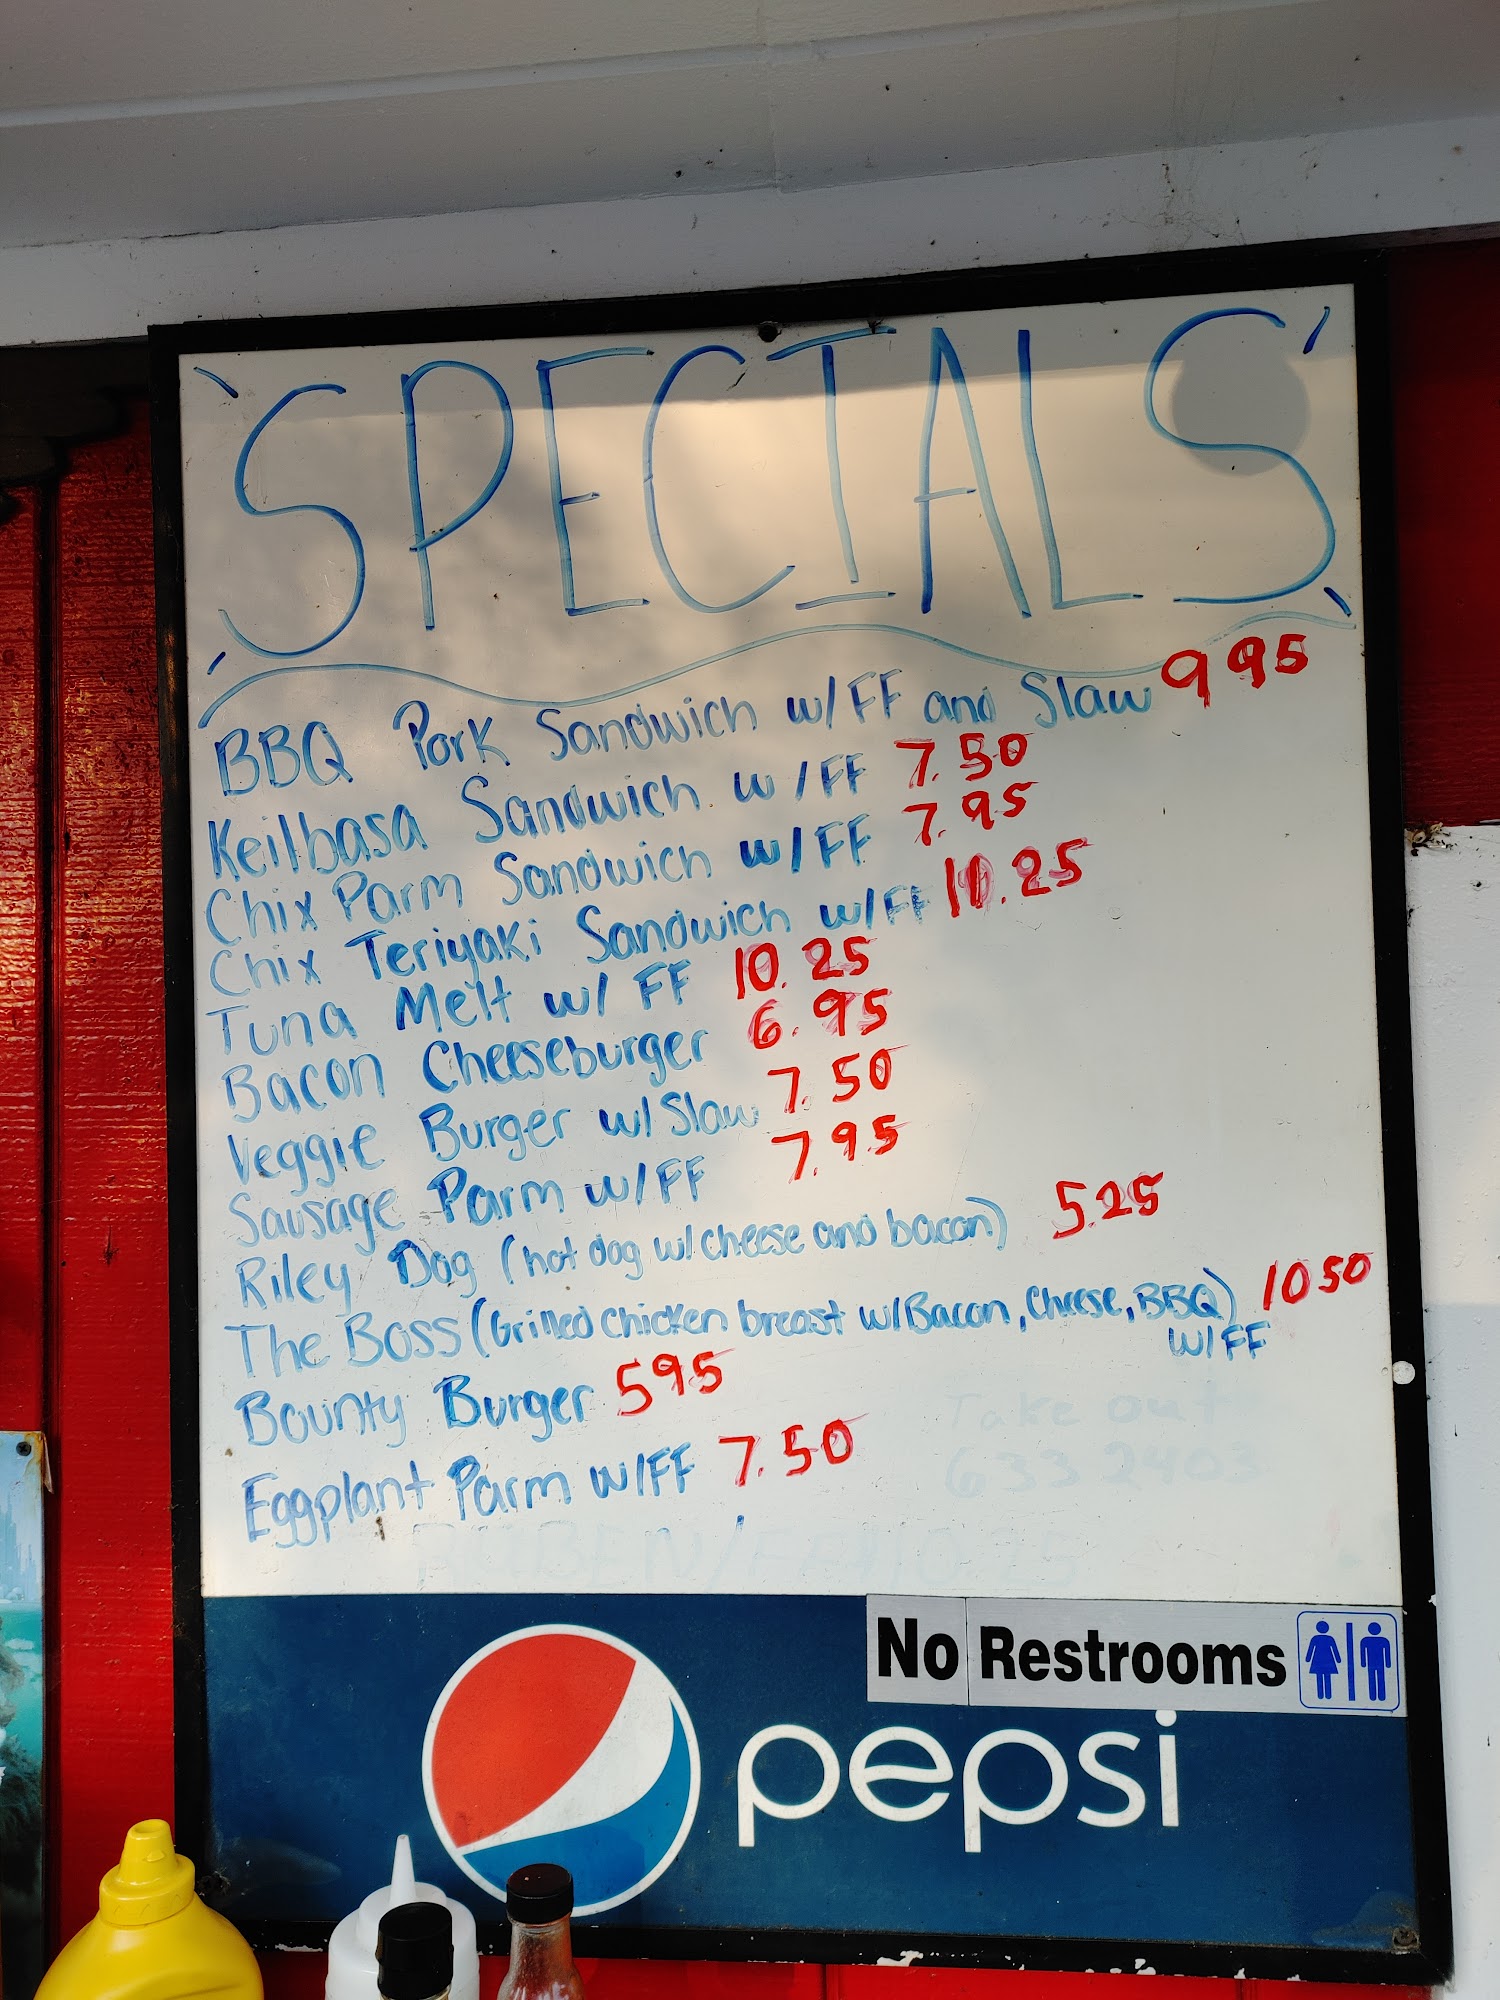 SPECIALS
BBQ Pork Sandwich w/FF and Slaw 9 95
Keilbasa Sandwich w/FF 7.50
Chix Parm Sandwich w/FF 7.95
Chix Teriyaki Sandwich w/FF .25
Tuna Melt w/ FF 10.25
Bacon Cheeseburger 6.95
Veggie Burger w/Slaw 7.50
Sausage Parm w/FF 7.95
Riley Dog (hot dog w/cheese and bacon) 5.25
The Boss (Grilled chicken breast w/Bacon, Cheese, BBQ) 10 50
W/FF
Bounty Burger 595
Eggplant Parm w/FF 7.50
Take out
633 2403
No Restrooms
pepsi